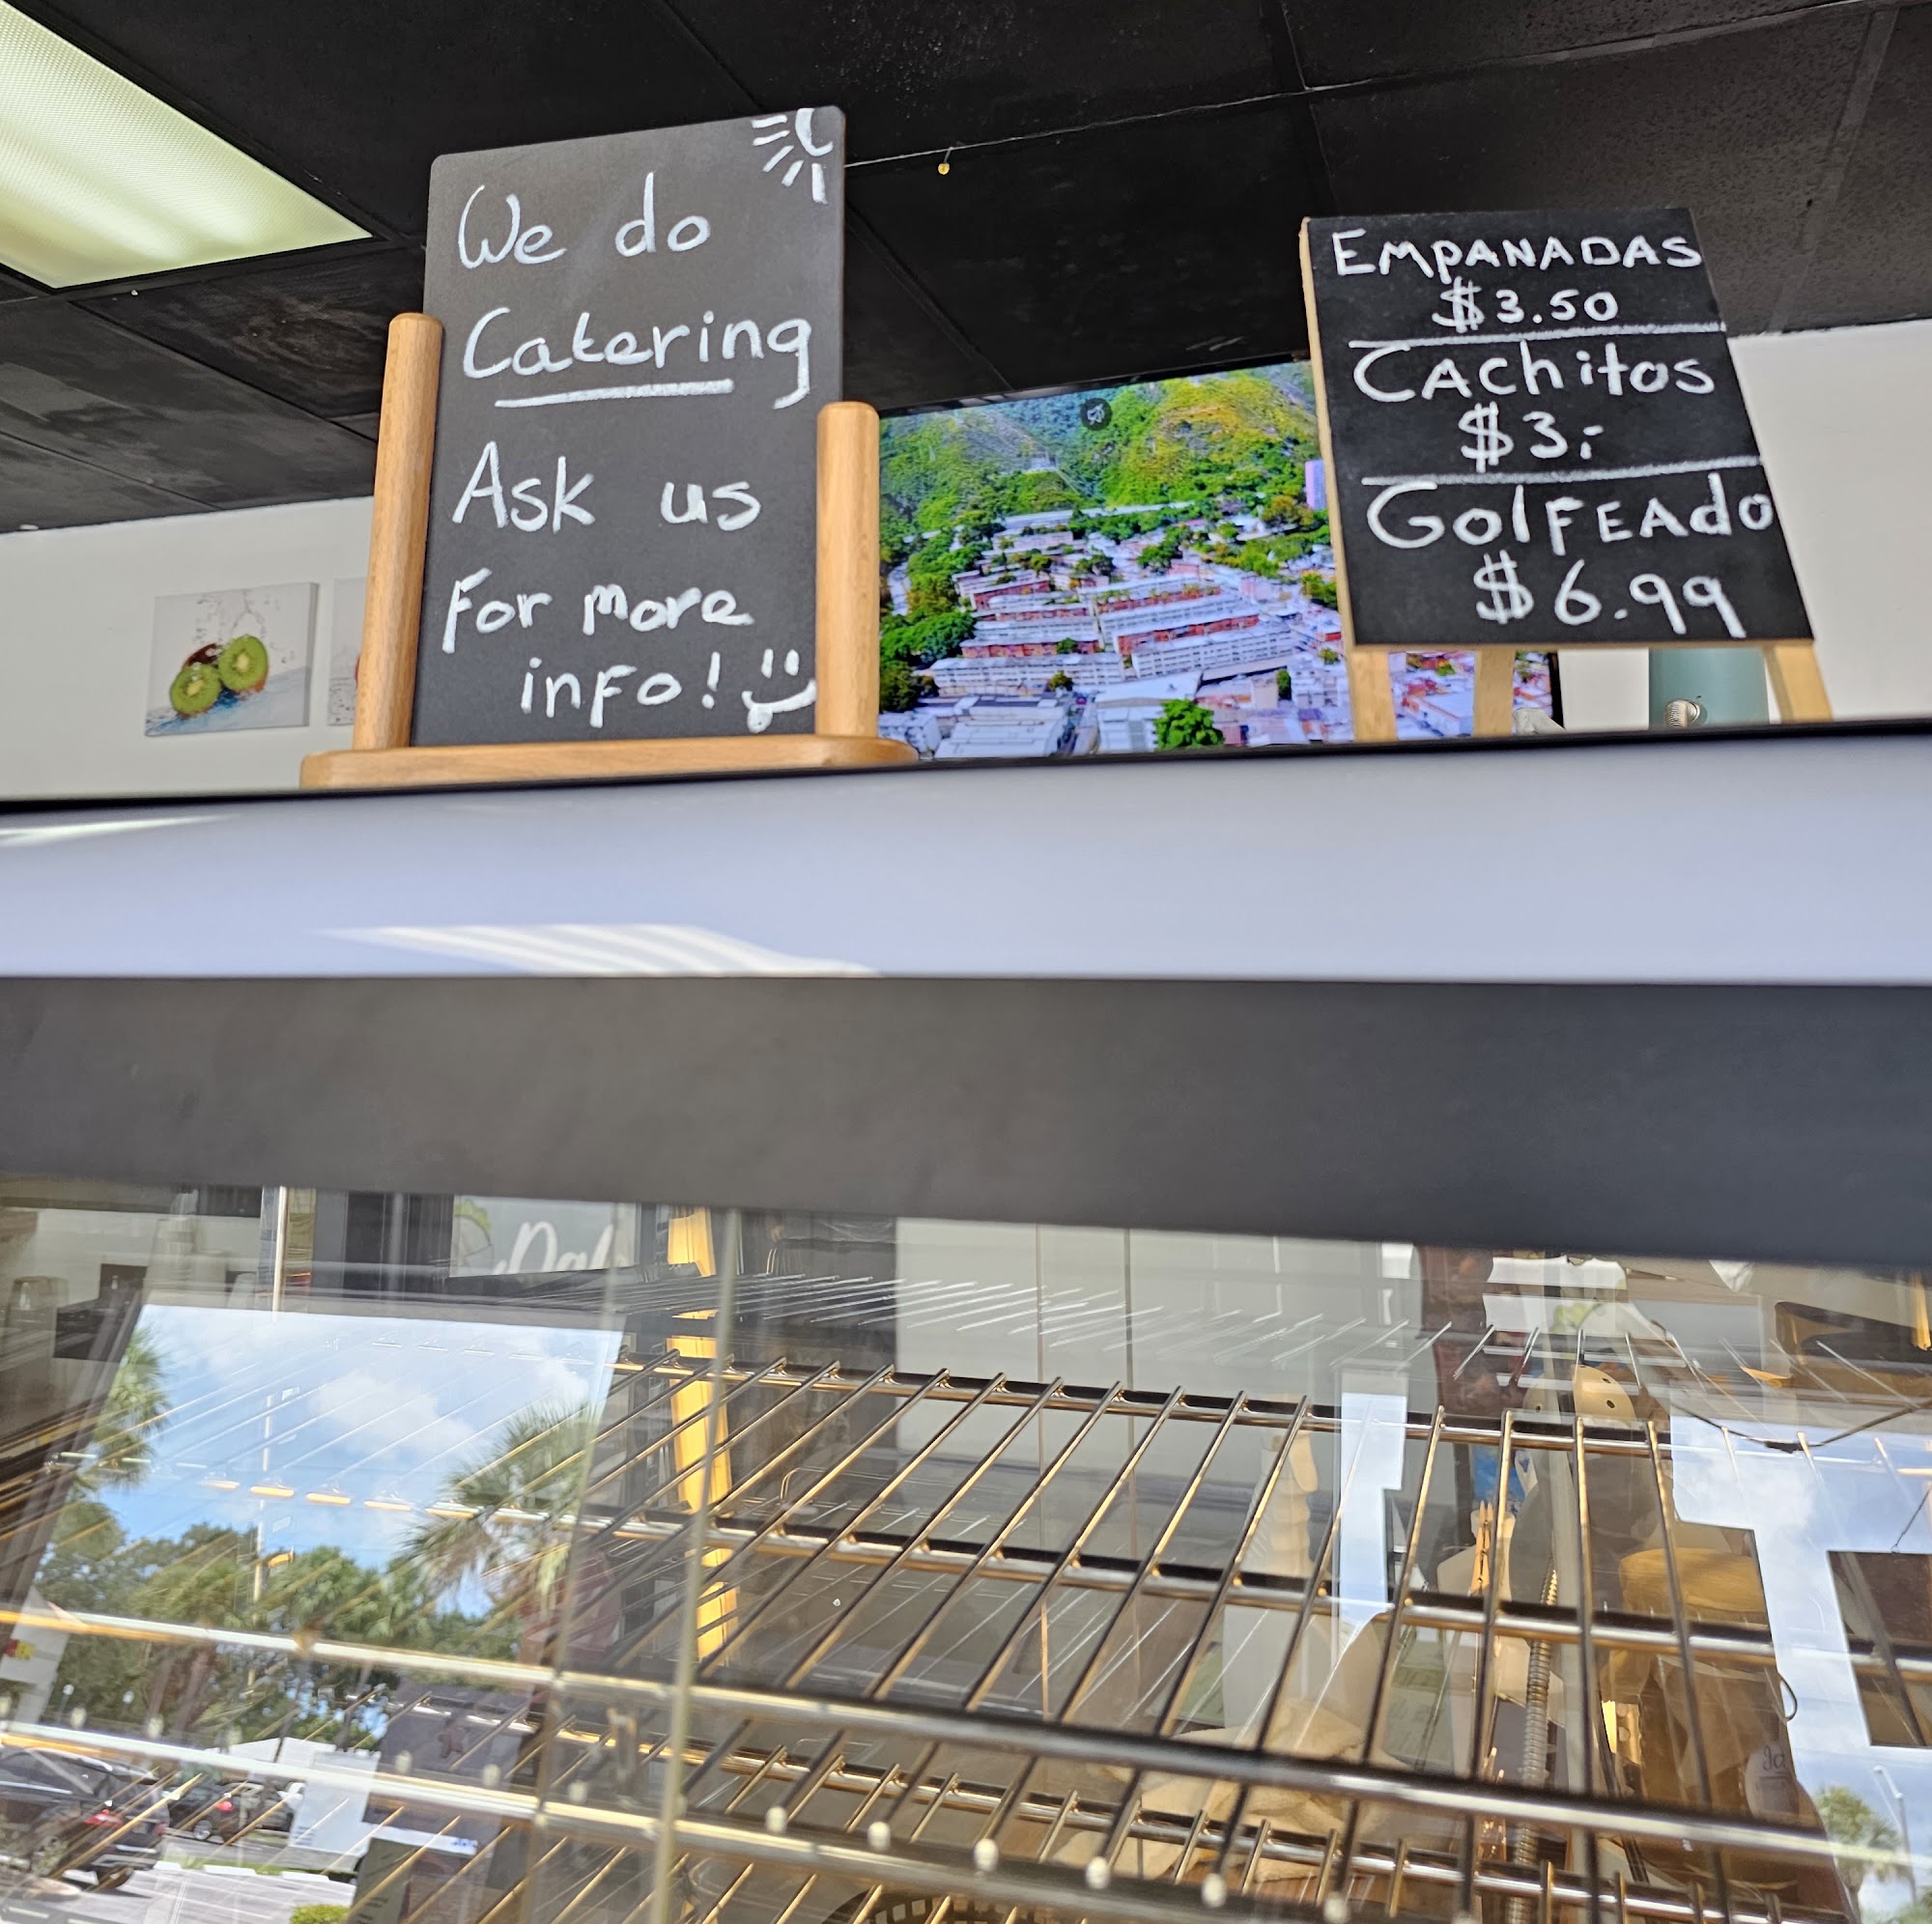 We do
Catering
Ask us
For more
info!
EMPANADAS
$3.50
CAchitos
$3;
GolFEAdo
$6.99